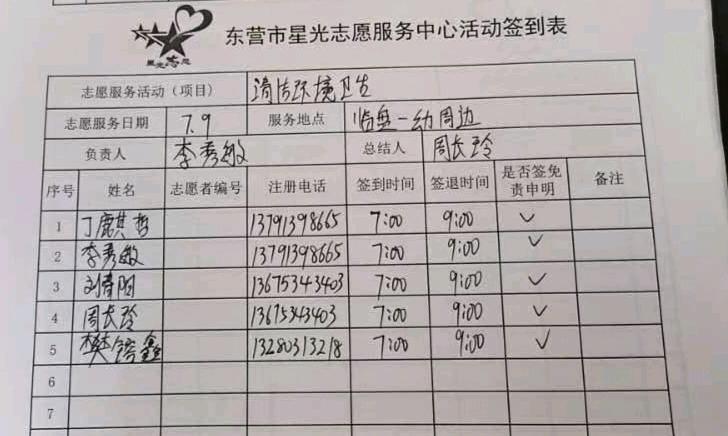 星光志愿
东营市星光志愿服务中心活动签到表
志愿服务活动（项目） 清洁环境卫生
志愿服务日期 7.9 服务地点 临盘一幼周边
负责人 李秀敏 总结人 周长玲
序号 姓名 志愿者编号 注册电话 签到时间 签退时间 是否签免责申明 备注
1 丁麒哲 13791398665 7:00 9:00 ✓
2 李秀敏 13791398665 7:00 9:00 ✓
3 刘春阳 13675343403 7:00 9:00 ✓
4 周长玲 13675343403 7:00 9:00 ✓
5 樊鑫 13280313218 7:00 9:00 ✓
6
7